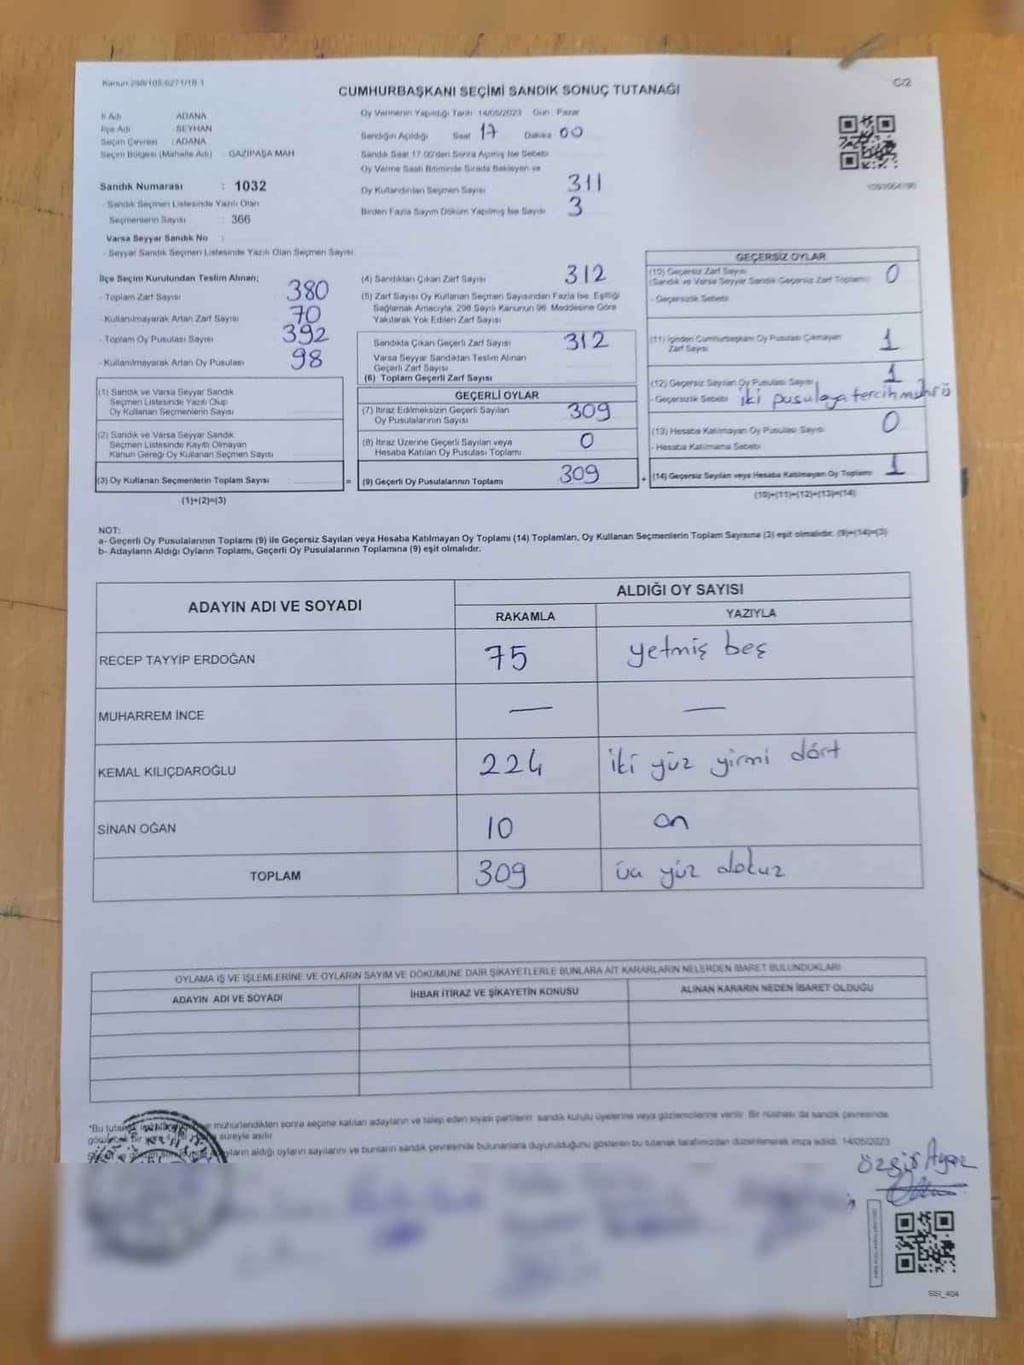 Kanun 298/105-6271/18.1
C/2
CUMHURBAŞKANI SEÇİMİ SANDIK SONUÇ TUTANAĞI
İl Adı : ADANA
İlçe Adı : SEYHAN
Seçim Çevresi : ADANA
Seçim Bölgesi (Mahalle Adı) : GAZİPAŞA MAH
Sandık Numarası : 1032
- Sandık Seçmen Listesinde Yazılı Olan
Seçmenlerin Sayısı : 366
Varsa Seyyar Sandık No :
- Seyyar Sandık Seçmen Listesinde Yazılı Olan Seçmen Sayısı
Oy Vermenin Yapıldığı Tarih: 14/05/2023 Gün: Pazar
Sandığın Açıldığı Saat 17 Dakika 00
Sandık Saat 17.00'den Sonra Açılmış İse Sebebi
Oy Verme Saati Bitiminde Sırada Bekleyen ve
Oy Kullandırılan Seçmen Sayısı 311
Birden Fazla Sayım Döküm Yapılmış İse Sayısı 3
İlçe Seçim Kurulundan Teslim Alınan;
- Toplam Zarf Sayısı 380
- Kullanılmayarak Artan Zarf Sayısı 70
- Toplam Oy Pusulası Sayısı 392
- Kullanılmayarak Artan Oy Pusulası 98
(1) Sandık ve Varsa Seyyar Sandık
Seçmen Listesinde Yazılı Olup
Oy Kullanan Seçmenlerin Sayısı
(2) Sandık ve Varsa Seyyar Sandık
Seçmen Listesinde Kayıtlı Olmayan
Kanun Gereği Oy Kullanan Seçmen Sayısı
(3) Oy Kullanan Seçmenlerin Toplam Sayısı =
(1)+(2)=(3)
(4) Sandıktan Çıkan Zarf Sayısı 312
(5) Zarf Sayısı Oy Kullanan Seçmen Sayısından Fazla İse, Eşitliği
Sağlamak Amacıyla, 298 Sayılı Kanunun 98. Maddesine Göre
Yakılarak Yok Edilen Zarf Sayısı
Sandıkta Çıkan Geçerli Zarf Sayısı 312
Varsa Seyyar Sandıktan Teslim Alınan
Geçerli Zarf Sayısı
(6) Toplam Geçerli Zarf Sayısı
GEÇERLİ OYLAR
(7) İtiraz Edilmeksizin Geçerli Sayılan
Oy Pusulalarının Sayısı 309
(8) İtiraz Üzerine Geçerli Sayılan veya
Hesaba Katılan Oy Pusulası Toplamı 0
(9) Geçerli Oy Pusulalarının Toplamı 309 +
GEÇERSİZ OYLAR
(10) Geçersiz Zarf Sayısı
(Sandık ve Varsa Seyyar Sandık Geçersiz Zarf Toplamı) 0
- Geçersizlik Sebebi
(11) İçinden Cumhurbaşkanı Oy Pusulası Çıkmayan
Zarf Sayısı 1
(12) Geçersiz Sayılan Oy Pusula Sayısı 1
- Geçersizlik Sebebi iki pusulaya tercih mührü
(13) Hesaba Katılmayan Oy Pusulası Sayısı 0
- Hesaba Katılmama Sebebi
(14) Geçersiz Sayılan veya Hesaba Katılmayan Oy Toplamı 1
(10)+(11)+(12)+(13)=(14)
NOT:
a- Geçerli Oy Pusulalarının Toplamı (9) ile Geçersiz Sayılan veya Hesaba Katılmayan Oy Toplamı (14) Toplamları, Oy Kullanan Seçmenlerin Toplam Sayısına (3) eşit olmalıdır. (9)+(14)=(3)
b- Adayların Aldığı Oyların Toplamı, Geçerli Oy Pusulalarının Toplamına (9) eşit olmalıdır.
ADAYIN ADI VE SOYADI
ALDIĞI OY SAYISI
RAKAMLA YAZIYLA
RECEP TAYYİP ERDOĞAN 75 yetmiş beş
MUHARREM İNCE — —
KEMAL KILIÇDAROĞLU 224 iki yüz yirmi dört
SİNAN OĞAN 10 on
TOPLAM 309 üç yüz dokuz
OYLAMA İŞ VE İŞLEMLERİNE VE OYLARIN SAYIM VE DÖKÜMÜNE DAİR ŞİKAYETLERLE BUNLARA AİT KARARLARIN NELERDEN İBARET BULUNDUKLARI
ADAYIN ADI VE SOYADI İHBAR İTİRAZ VE ŞİKAYETİN KONUSU ALINAN KARARIN NEDEN İBARET OLDUĞU
*Bu tutanak mühürlendikten sonra seçime katılan adayların ve talep eden siyasi partilerin sandık kurulu üyelerine veya gözlemcilerine verilir. Bir nüshası da sandık çevresinde
süreyle asılır.
aldığı oyların sayılarını ve bunların sandık çevresinde bulunanlara duyurulduğunu gösteren bu tutanak tarafımızdan düzenlenerek imza edildi. 14/05/2023
SSI_404